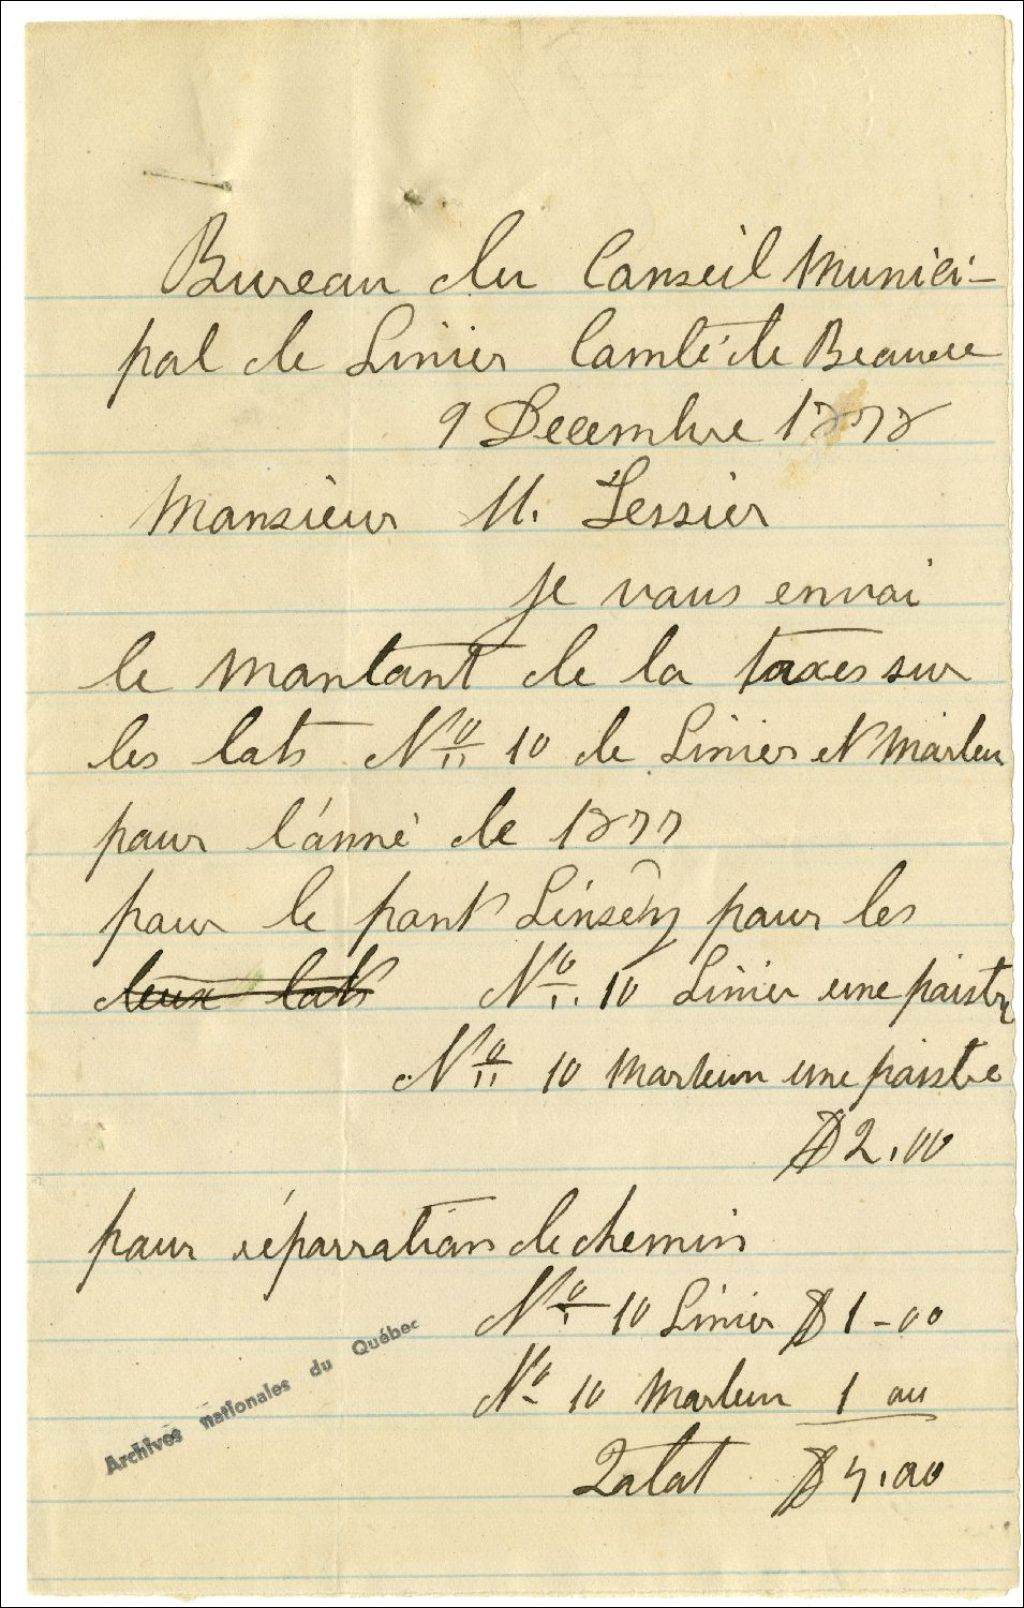 Bureau du Conseil Munici-
pal de Linier Comté de Beauce
9 Decembre 1878
Monsieur U. Tessier
je vous envoi
le montant de la taxes sur
les lots No 10 de Linier et Marlou
pour l'anné de 1877
pour le pont Linsey pour les
deux lots No 10 Linier une piastre
No 10 Marleun une piastre
$2.00
pour réparration de chemin
No 10 Linier $1-00
No 10 Marleun 1 00
Total $4.00
Archives nationales du Québec